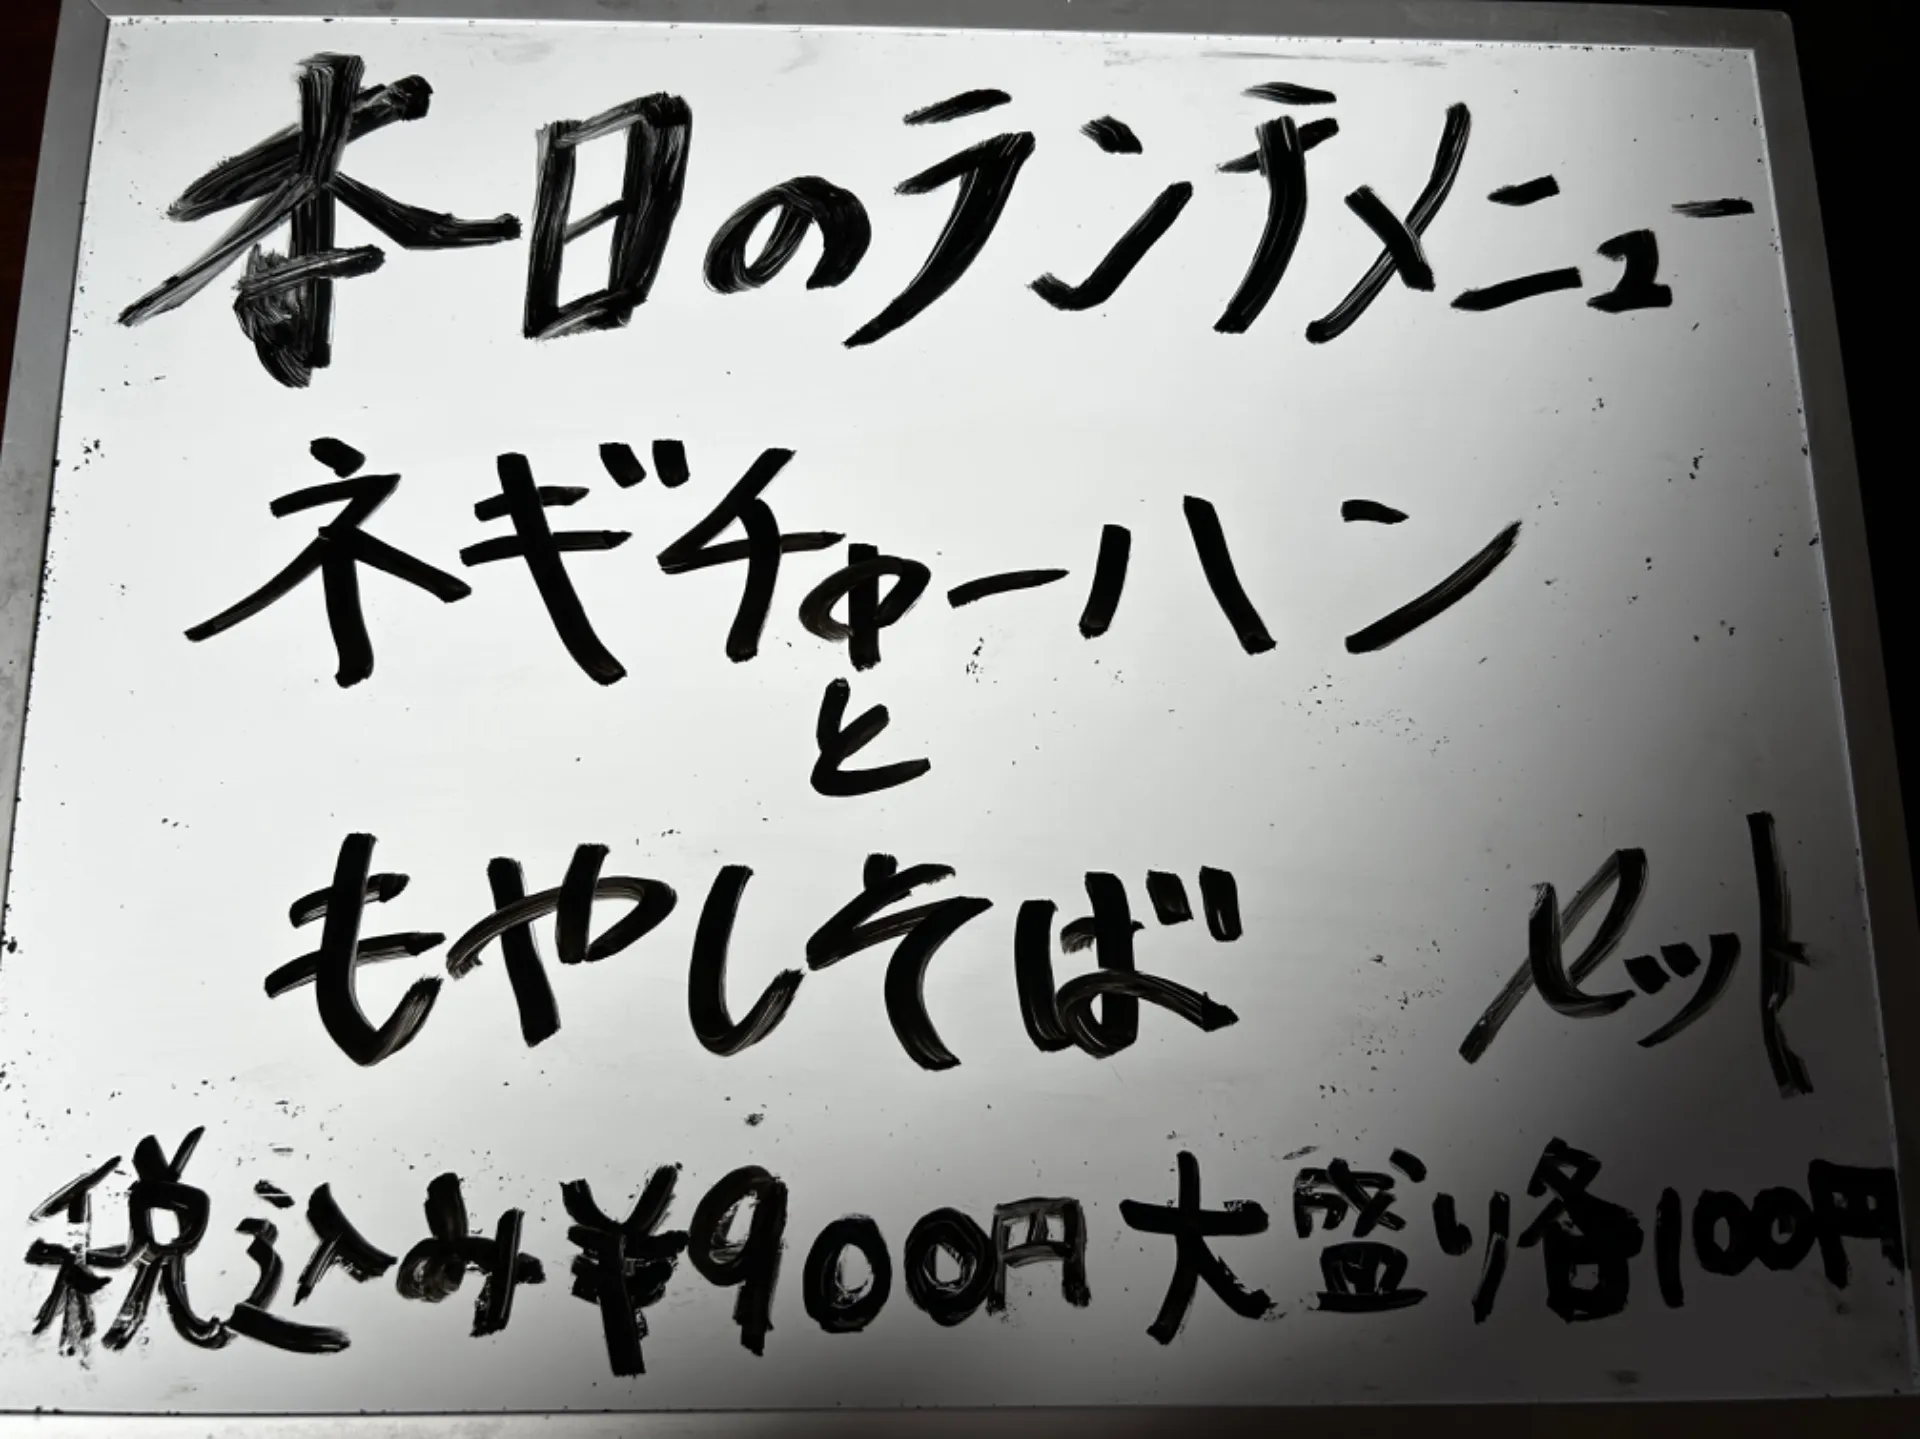 本日のランチメニュー
ネギチャーハン
と
もやしそば セット
税込み¥900円 大盛り各100円